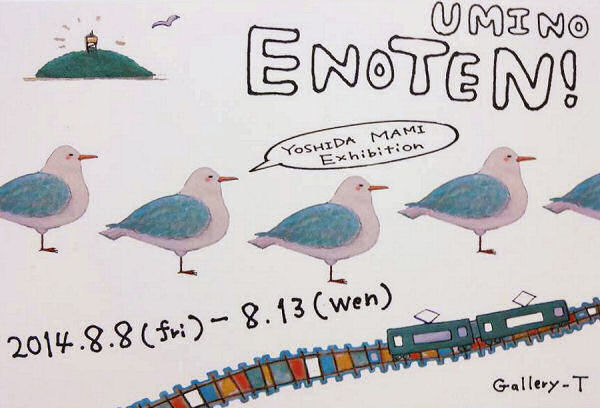 UMI NO
ENOTEN!
YOSHIDA MAMI
Exhibition
2014.8.8(fri)-8.13(wen)
Gallery-T